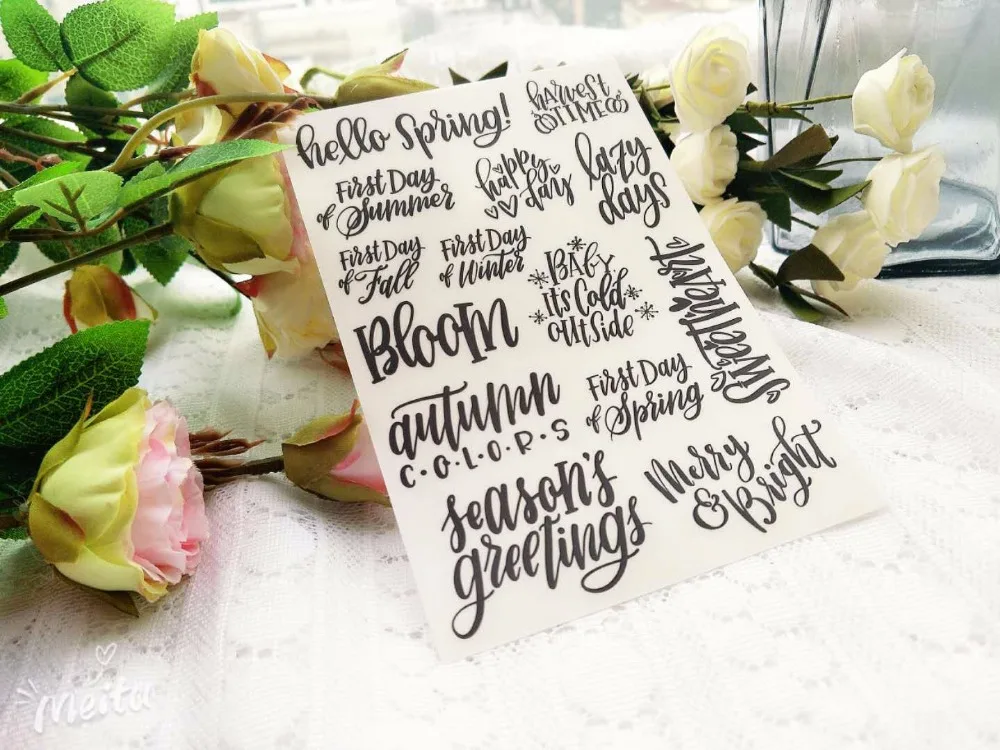 hello Spring!
harvest
TIME
First Day
of Summer
happy
day
lazy
days
First Day
of Fall
First Day
of Winter
BABY
It's Cold
OUtSide
Sweetheart
BlooM
autumn
C·O·L·O·R·S
First Day
of Spring
season's
greetings
Merry
& Bright
Meitu